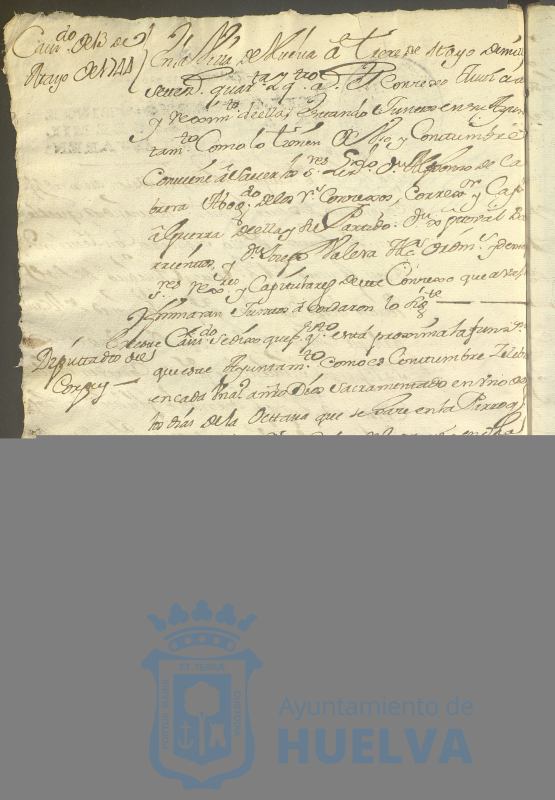 Cavdo. de 13 de
Mayo de 1744
En la Villa de Huelva a trece de Mayo de mil
setezs. quarta. y qtro. as. El Conzexo Justicia
y rexim.to de ella estando Juntos en su Ayun
tam.to Como lo tienen de Vso, y Costumbre
Conviene a saver los sres Lizdo. Dn. Alfonso de Ca
brera Abogdo. de los rs. Conssexos, Correxor. y Capn.
a Guerra de ella y su Partido. Dn.
y Dn. Joseph Valera
sres rexres. y Capitulares de este Conssexo que aqui
firmaran Juntos acordaron lo sigte.
Diputados del
Corpus
En este Cavdo. se dixo que respto. qe. está proxima la funzn.
que este Ayuntamto. como es Costumbre Zelebra
en cada vn año Dios Sacramentado en vno de
los dias de la Octtava que se haze en la Parroql.
ET TERRÆ
PORTUS MARIS
CUSTODIA
Ayuntamiento de
HUELVA